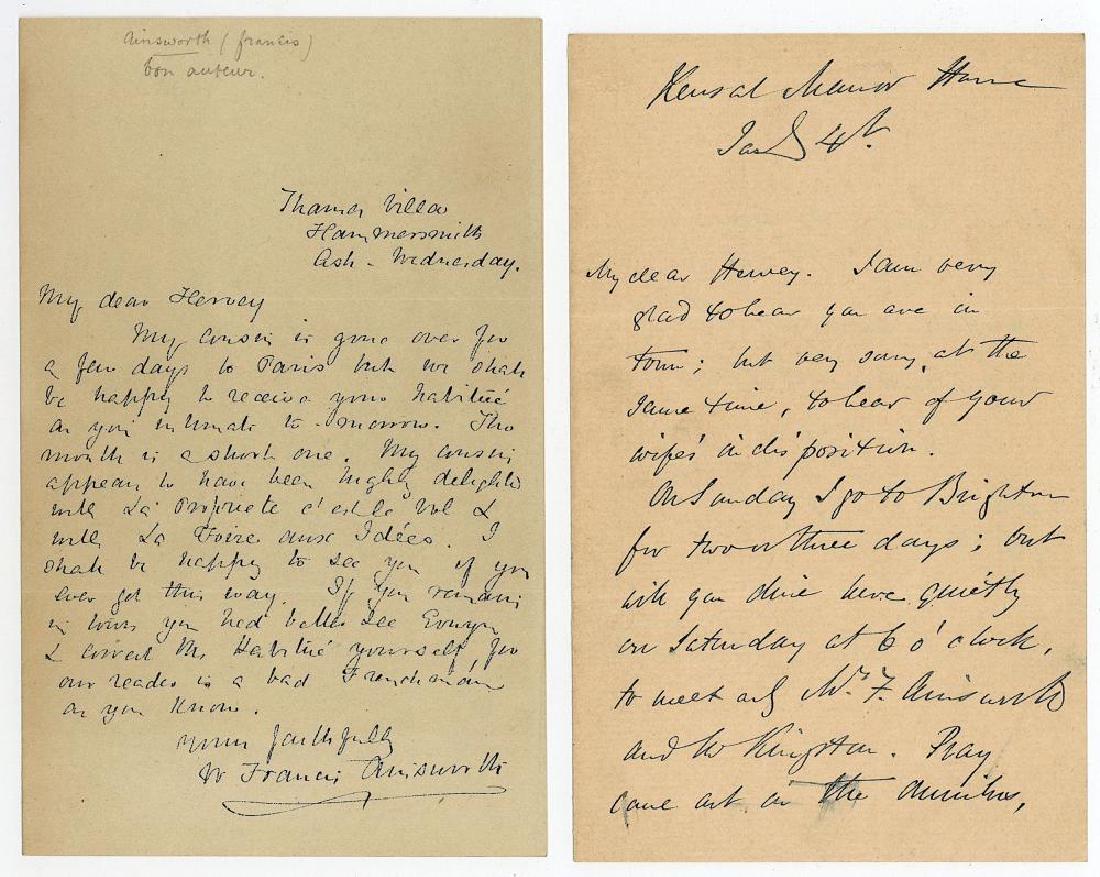 Ainsworth (francis)
bon auteur.
Thames Villa
Hammersmith
Ash-Wednesday.
My dear Hervey
My cousin is gone over for
a few days to Paris but we shall
be happy to receive your Habitué
as you intimate to-morrow. The
month is a short one. My cousin
appears to have been highly delighted
with La Propriete c'est le Vol &
with La Foire aux Idées. I
shall be happy to see you if you
ever get this way. If you remain
in town you had better see
& correct the Habitué yourself for
our reader is a bad Frenchman
as you know.
Yours faithfully
W Francis Ainsworth
Kensal Manor House
Jany 4th.
My dear Hervey. I am very
glad to hear you are in
town; but very sorry, at the
same time, to hear of your
wife's indisposition.
On Sunday I go to Brighton
for two or three days; but
will you dine here quietly
on Saturday at 6 o'clock,
to meet only Mr F. Ainsworth
and W Kingston. Pray
come out in the omnibus,